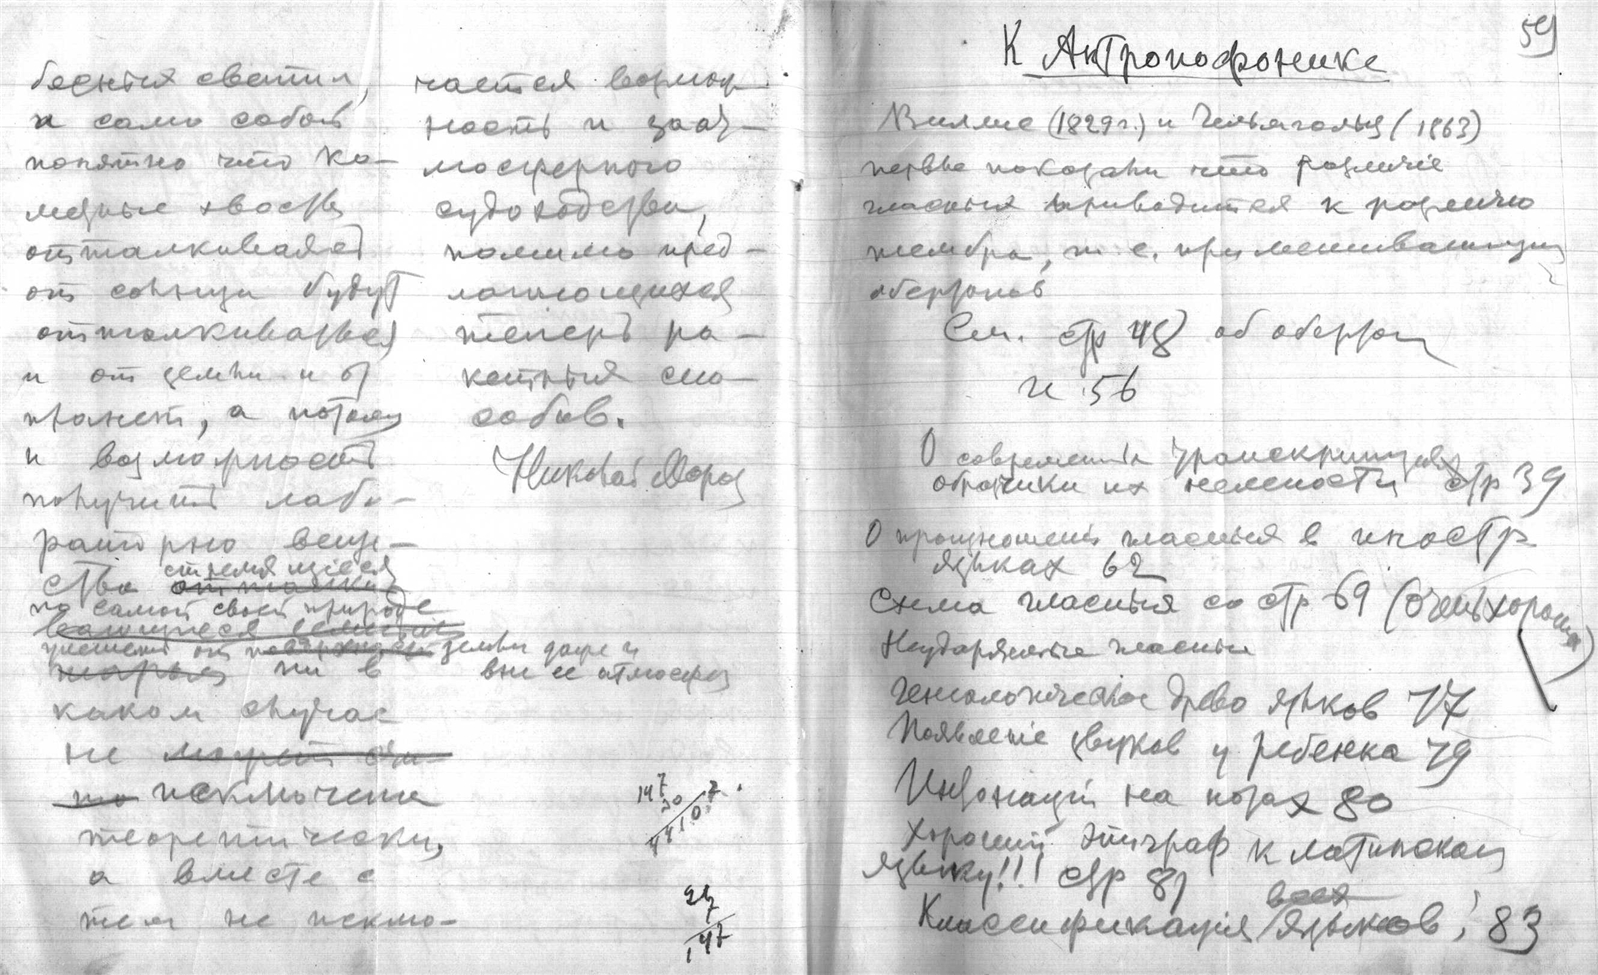 бесных светил,
и само собой
понятно что ко-
метные хвосты
отталкиваясь
от солнца будут
отталкиваться
и от земли и от
планет, а потому
и возможность
получить лабо-
раторно веще-
ства стремящееся
по самой своей природе
улететь от земли даже и
ни в вне ее атмосферы
каком случае
не может
исключена
теоретически,
а вместе с
тем не исклю-
чается возмож-
ность и заат-
мосферного
судоходства,
помимо пред-
лагающихся
теперь ра-
кетных спо-
собов.
Николай Мороз
147
30
4410
7.
147
59
К Антропофонике
Виллис (1829 г.) и Гельмгольц (1863)
первые показали что различие
гласных приводится к различию
тембра, т. е. примешивающихся
обертонов
См. стр 48 об обертон
и 56
О современных транскрипциях
образчики их нелепости стр 39
О произношении гласных в иностр
языках 62
Схема гласных со стр 69 (очень хорошая)
Неударяемые гласные
Генеалогическое древо языков 77
Появление звуков у ребенка 79
Интонации на нотах 80
Хороший эпиграф к латинскому
языку!!! стр 81
Классификация всех языков, 83